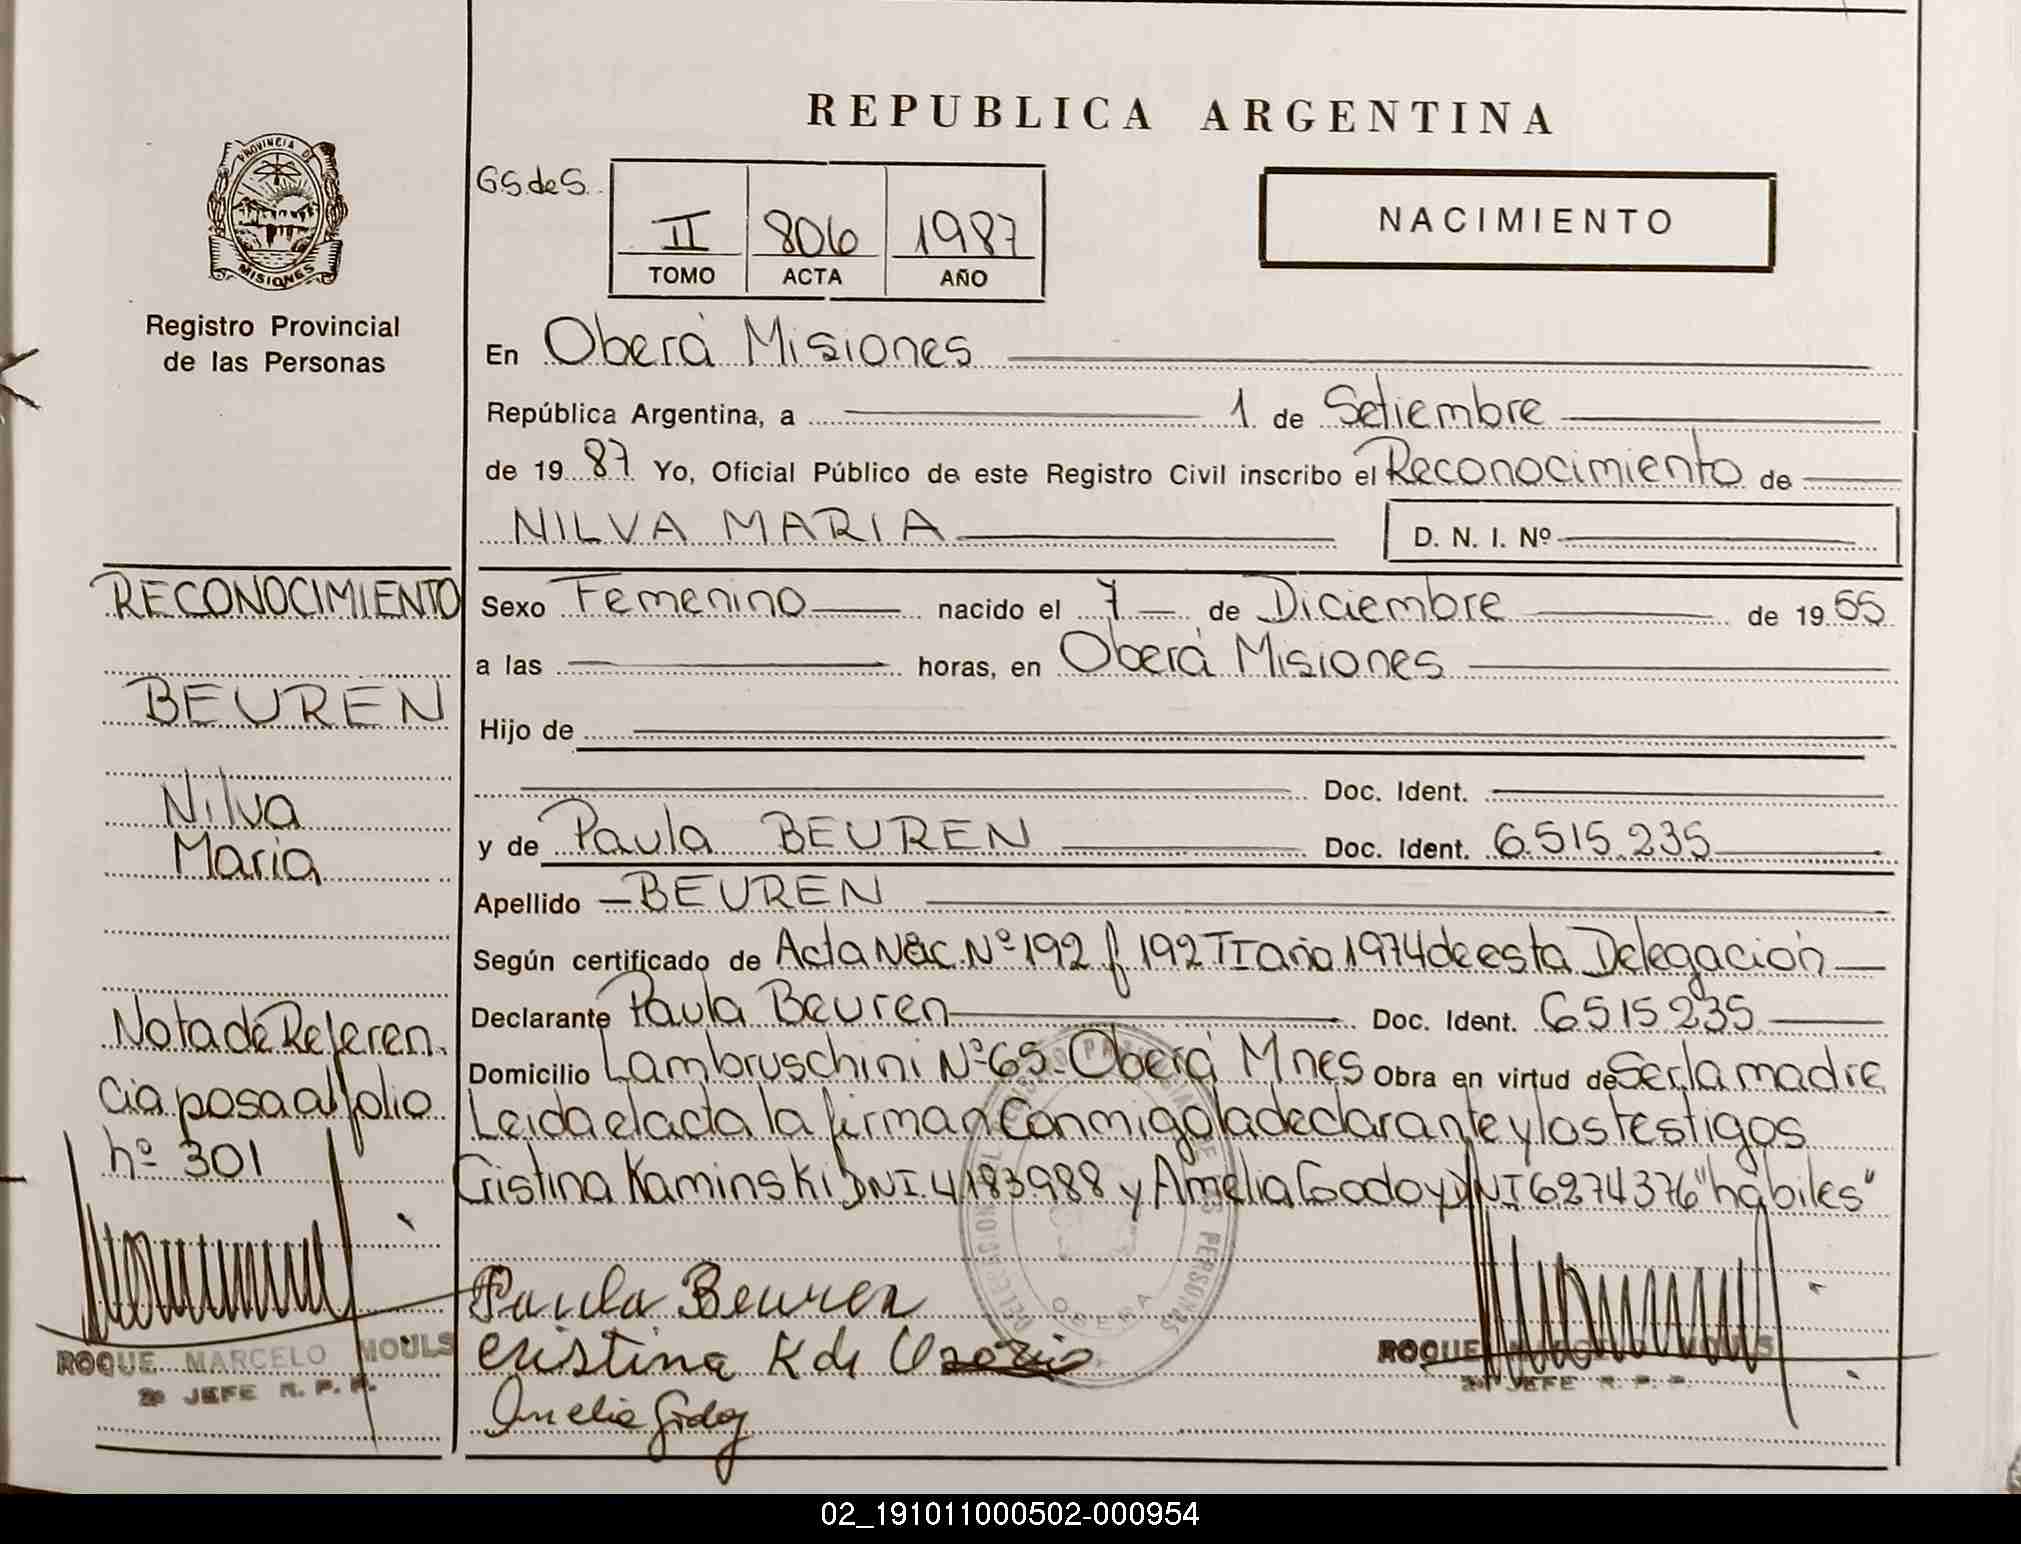 REPUBLICA ARGENTINA
PROVINCIA DE
MISIONES
Registro Provincial
de las Personas
GS.deS.
II 806 1987
TOMO ACTA AÑO
NACIMIENTO
En Oberá Misiones
República Argentina, a 1 de Setiembre
de 19 87 Yo, Oficial Público de este Registro Civil inscribo el Reconocimiento de
NILVA MARIA D. N. I. Nº
RECONOCIMIENTO
BEUREN
Nilva
Maria
Nota de Referen
cia posa al folio
nº 301
ROQUE MARCELO MOULS
2º JEFE R. P. P.
Sexo Femenino nacido el 7 de Diciembre de 19 65
a las horas, en Oberá Misiones
Hijo de
Doc. Ident.
y de Paula BEUREN Doc. Ident. 6.515.235
Apellido BEUREN
Según certificado de Acta Nac. Nº 192 f 192 TI año 1974 de esta Delegación
Declarante Paula Beuren Doc. Ident. 6515235
Domicilio Lambruschini Nº 65 Oberá Mnes Obra en virtud de Ser la madre
Leida el acta la firman Conmigo la declarante y los testigos
Cristina Kaminski DNI. 4183988 y Amelia Godoy DNI 6274376 "habiles"
Paula Beuren
Cristina K de
Amelia Godoy
ROQUE MARCELO MOULS
2º JEFE R. P. P.
02_191011000502-000954